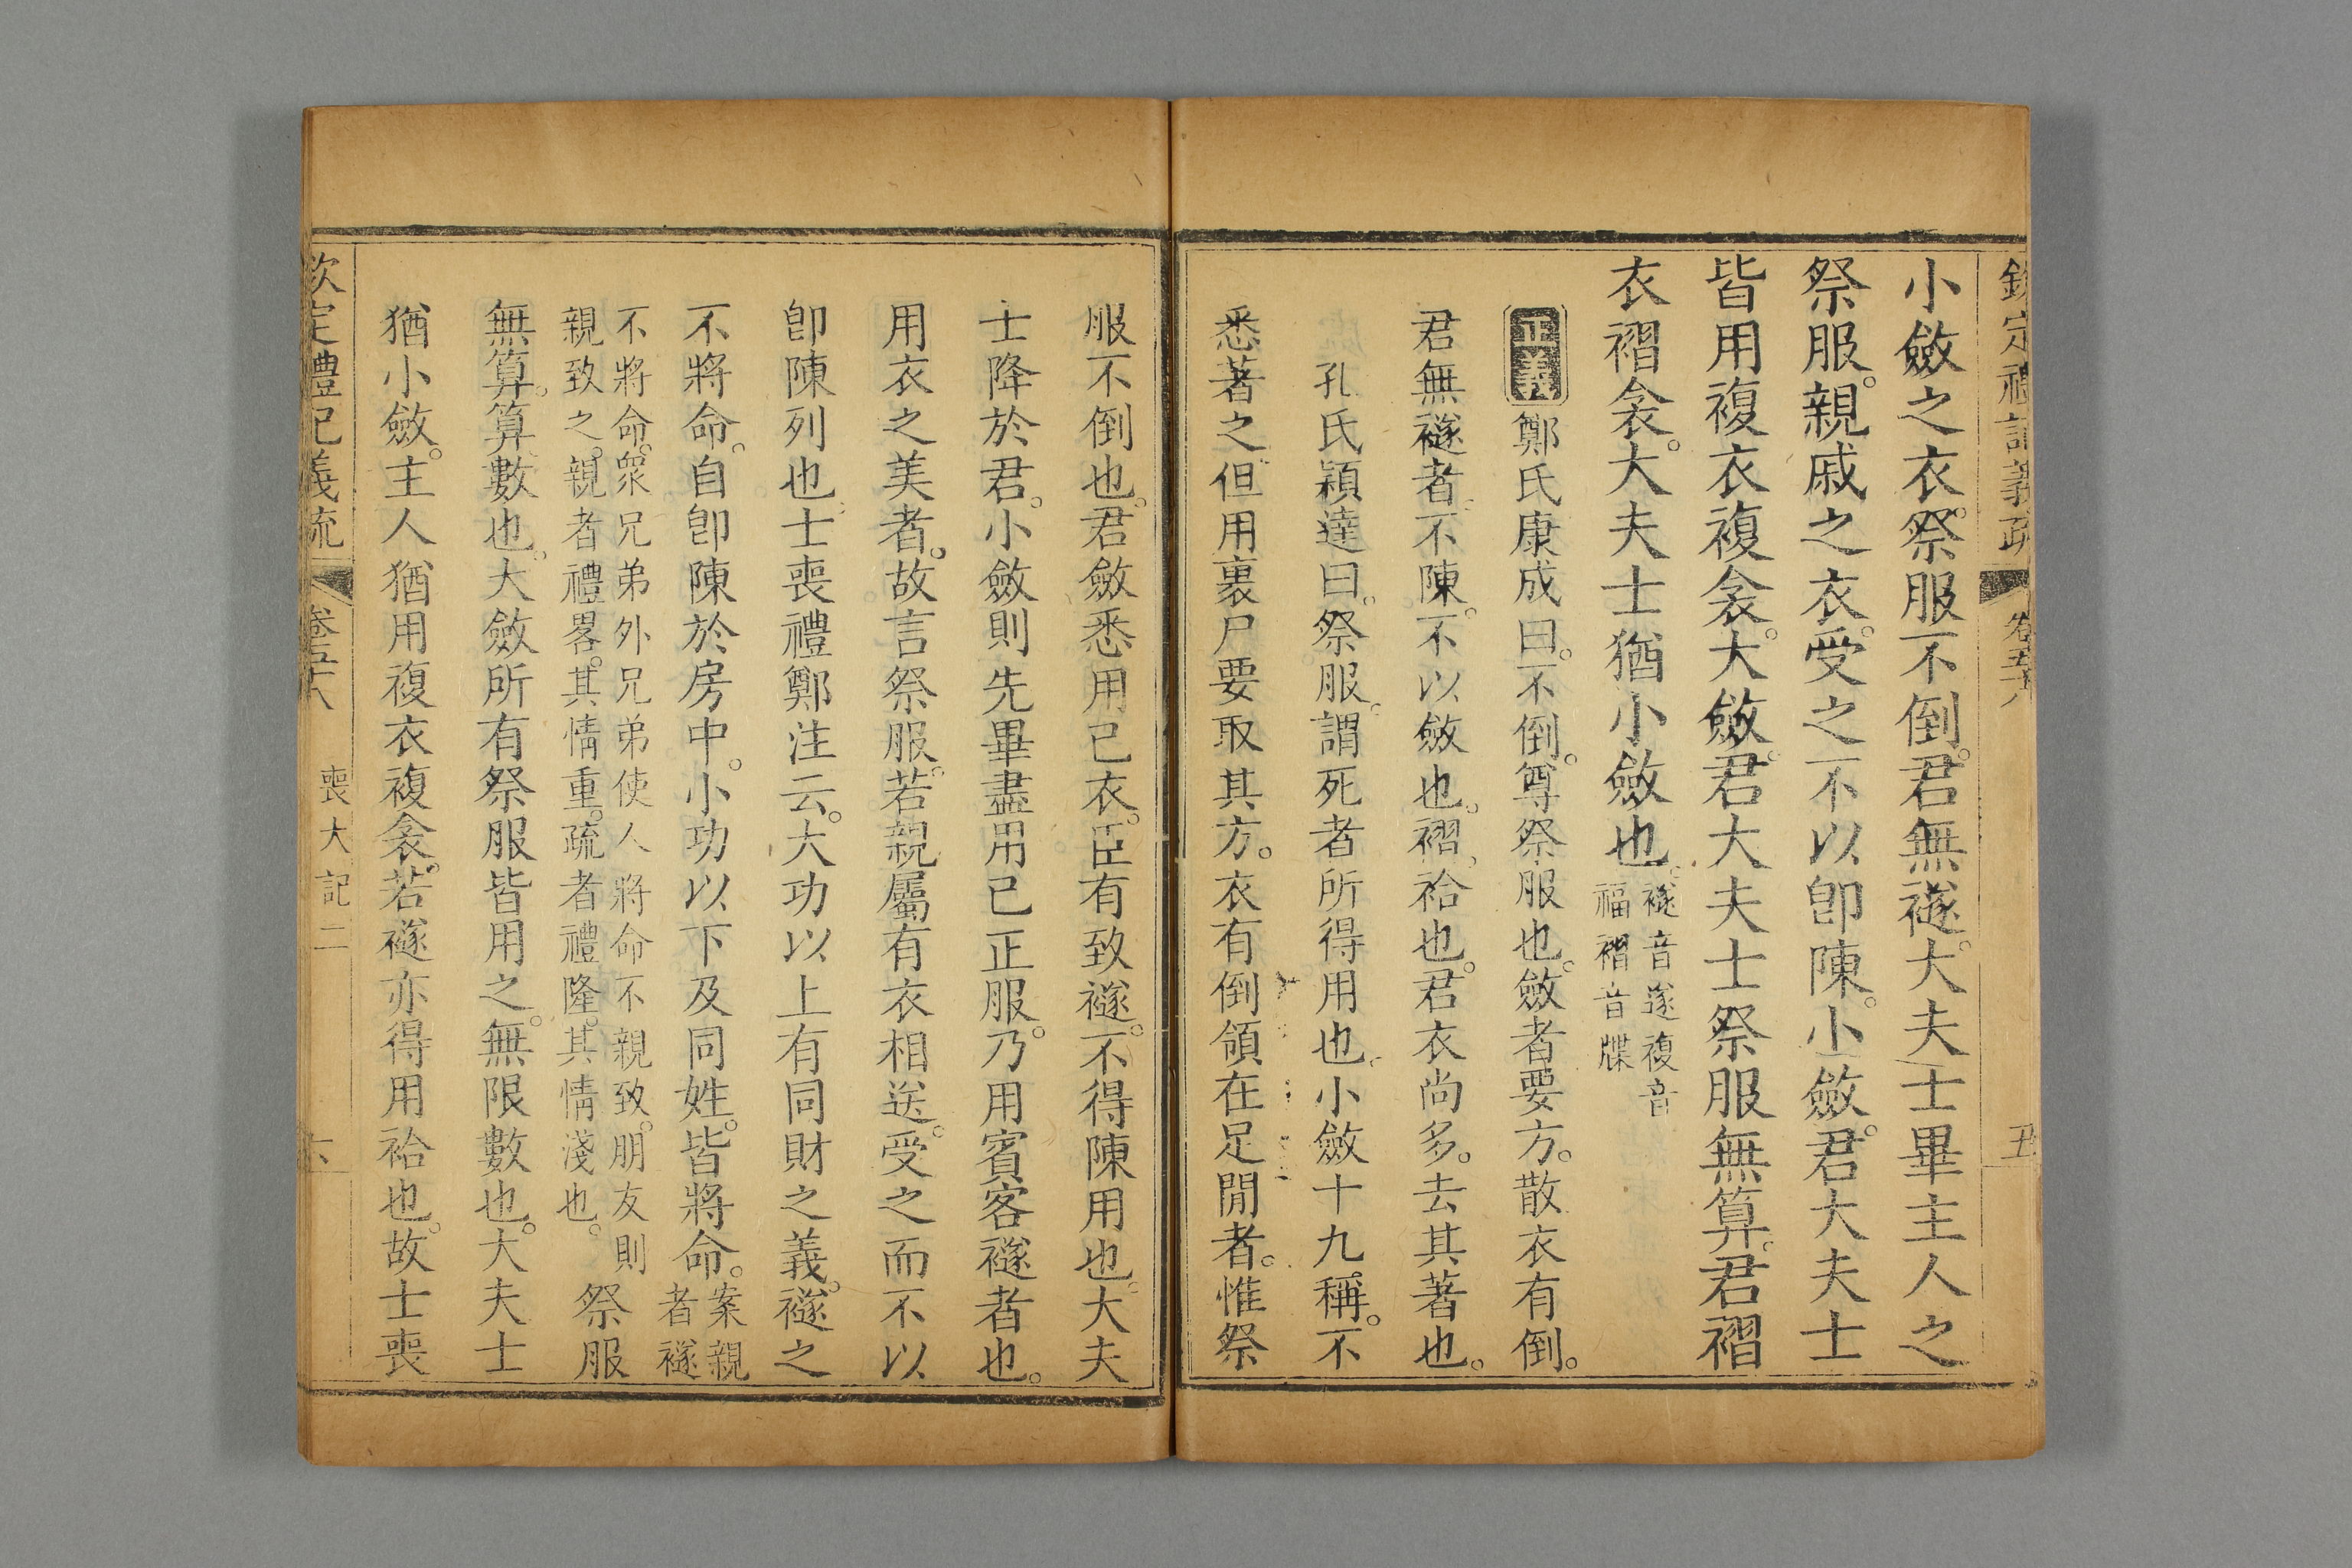 欽定禮記義疏 卷五十八 五
小斂之衣。祭服不倒。君無襚。大夫士畢主人之
祭服。親戚之衣。受之。不以卽陳。小斂。君大夫士
皆用複衣複衾。大斂。君大夫士祭服無算。君褶
衣褶衾。大夫士猶小斂也。襚音遂複音
福褶音牒
正義 鄭氏康成曰。不倒。尊祭服也。斂者要方。散衣有倒。
君無襚者。不陳。不以斂也。褶。袷也。君衣尚多。去其著也。
孔氏穎達曰。祭服。謂死者所得用也。小斂十九稱。不
悉著之。但用裹尸要取其方。衣有倒領在足閒者。惟祭
服不倒也。君斂悉用已衣。臣有致襚。不得陳用也。大夫
士降於君。小斂則先畢盡用已正服。乃用賓客襚者也。
用衣之美者。故言祭服。若親屬有衣相送。受之而不以
卽陳列也。士喪禮鄭注云。大功以上有同財之義。襚之
不將命。自卽陳於房中。小功以下及同姓。皆將命。案親
者襚
不將命。衆兄弟外兄弟使人將命不親致。朋友則
親致之。親者禮畧。其情重。疏者禮隆。其情淺也。
祭服
無算。算數也。大斂所有祭服皆用之。無限數也。大夫士
猶小斂。主人猶用複衣複衾。若襚亦得用袷也。故士喪
欽定禮記義疏 卷五十八 喪大記二 六